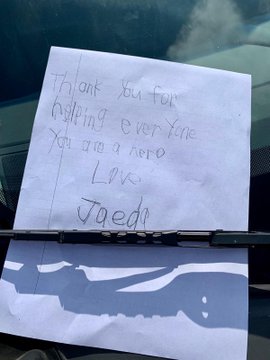 Thank You for
helping everyone
You are a hero
Love
Jaeda